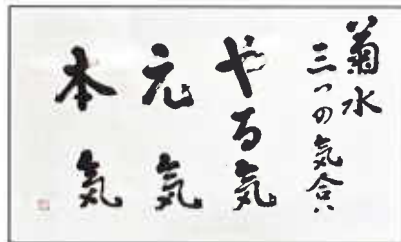 菊水
三つの気合い
やる気
元気
本気